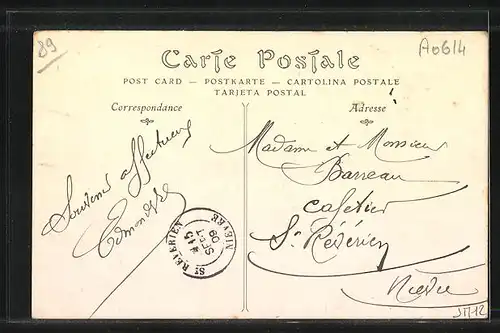 89
A0614
Carte Postale
POST CARD — POSTKARTE — CARTOLINA POSTALE
TARJETA POSTAL
Correspondance
Adresse
Souvenir affectueux
Madame et Monsieur
Barreau
Cafetier
St Révérien
Nièvre
ST RÉVÉRIEN
NIÈVRE
15
SEPT
09